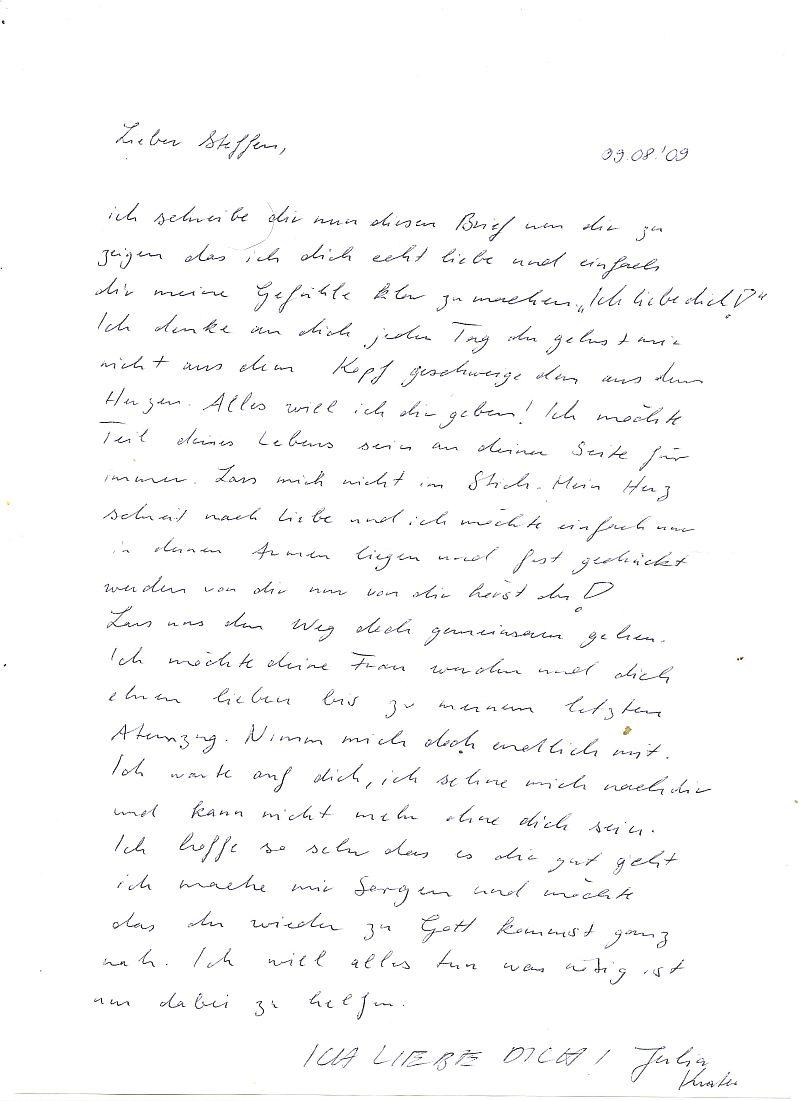 Lieber Steffen,
09.08.'09
ich schreibe dir nun diesen Brief um dir zu
zeigen das ich dich echt liebe und einfach
dir meine Gefühle klar zu machen „Ich liebe dich!“
Ich denke an dich jeden Tag du gehst mir
nicht aus dem Kopf geschweige den aus dem
Herzen. Alles will ich dir geben! Ich möchte
Teil deines Lebens sein an deiner Seite für
immer. Lass mich nicht im Stich. Mein Herz
schreit nach Liebe und ich möchte einfach nur
in deinen Armen liegen und fest gedrückt
werden von dir nur von dir hörst du!
Lass uns den Weg doch gemeinsam gehen.
Ich möchte deine Frau werden und dich
ehren lieben bis zu meinem letzten
Atemzug. Nimm mich doch endlich mit.
Ich warte auf dich, ich sehne mich nach dir
und kann nicht mehr ohne dich sein.
Ich hoffe so sehr das es dir gut geht
ich mache mir Sorgen und möchte
das du wieder zu Gott kommst ganz
nah. Ich will alles tun was nötig ist
um dabei zu helfen.
ICH LIEBE DICH! Julia